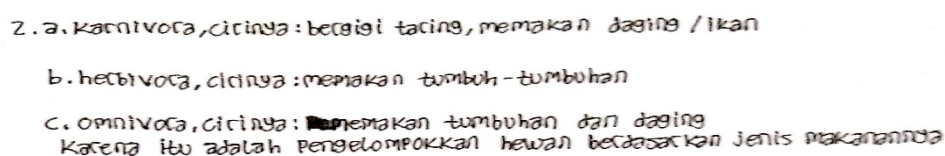 2. a. Karnivora, cirinya: bergigi taring, memakan daging / ikan
b. herbivora, cirinya: memakan tumbuh-tumbuhan
c. Omnivora, cirinya: memakan tumbuhan dan daging
Karena itu adalah Pengelompokkan hewan berdasarkan jenis makanannya